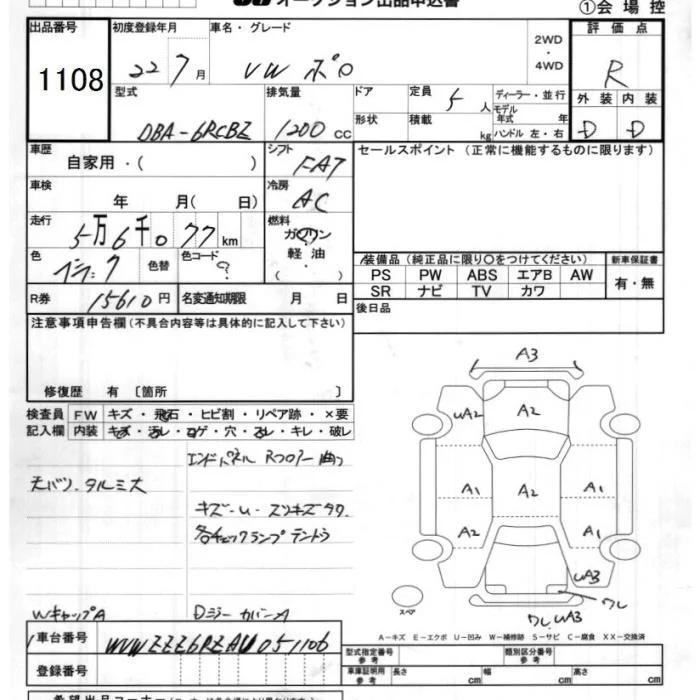 オークション出品申込書
①会場控
出品番号 初度登録年月 車名・グレード 2WD ・ 4WD 評価点
1108 22 7月 VW ポロ R
型式 排気量 ドア 定員 5人 ディーラー・並行 外装 内装
DBA-6RCBZ 1200cc 形状 積載 kg モデル年式 年 ハンドル 左・右 D D
車歴 自家用・( ) シフト FAT セールスポイント (正常に機能するものに限ります)
車検 年 月( 日) 冷房 AC
走行 5万6千077km 燃料 ガソリン 軽油 ( )
色 色替 色コード ? 装備品 (純正品に限り○をつけてください) 新車保証書
PS PW ABS エアB AW 有・無
SR ナビ TV カワ
R券 15610円 名変通知期限 月 日 後日品
注意事項申告欄(不具合内容等は具体的に記入して下さい)
修復歴 有 〔箇所 〕
検査員 FW キズ・飛石・ヒビ割・リペア跡・×要
記入欄 内装 キズ・汚レ・コゲ・穴・スレ・キレ・破レ
エンドパネル Rフロアー曲り
天バリ タルミ大
各チェックランプテントウ
WキャップA
A3
uA2 A2
A1 A2 A1
A2 A1
uA3
ワレ
ワレ uA3
スペア
A-キズ E-エクボ U-凹み W-補修跡 S-サビ C-腐食 XX-交換済
車台番号 WVWZZZ6RZAU051106
型式指定番号 参考 類別区分番号 参考
登録番号 車庫証明用 参考 長さ cm 幅 cm 高さ cm